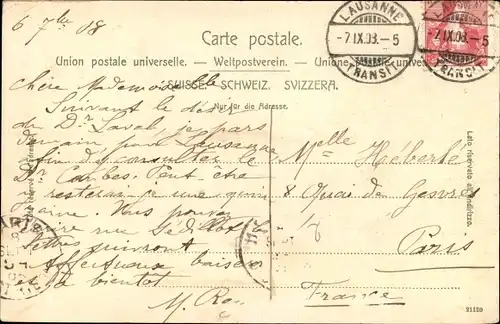 6 7bre 08
LAUSANNE
-7.IX.08.-5
TRANSIT
Carte postale.
Union postale universelle. — Weltpostverein. — Unione postale universale.
SUISSE. SCHWEIZ. SVIZZERA.
Nur für die Adresse.
Chère Mademoiselle
Suivant le désir
du Dr Laval, je pars
demain, pour Lausanne
afin de consulter le
Dr Combes. Peut être
resterai je une quin
zaine. Vous pouvez
rue
lettres suivront
Affectueux baisers
et à bientôt
M. Ro
Melle Hébarlé
8 Quai de Gesvres
Paris
France
Lato riservato all'indirizzo.
21120